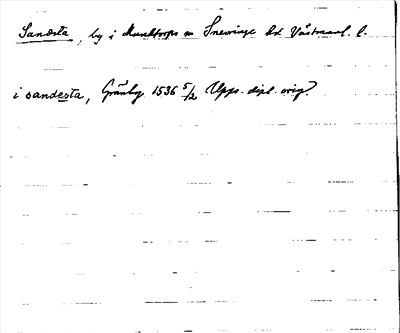 Sandesta, by i Munktorps sn Snevringe hd Västmanl. l.
i sandesta, Gränby 1536 5/2 Upps. dipl. orig.